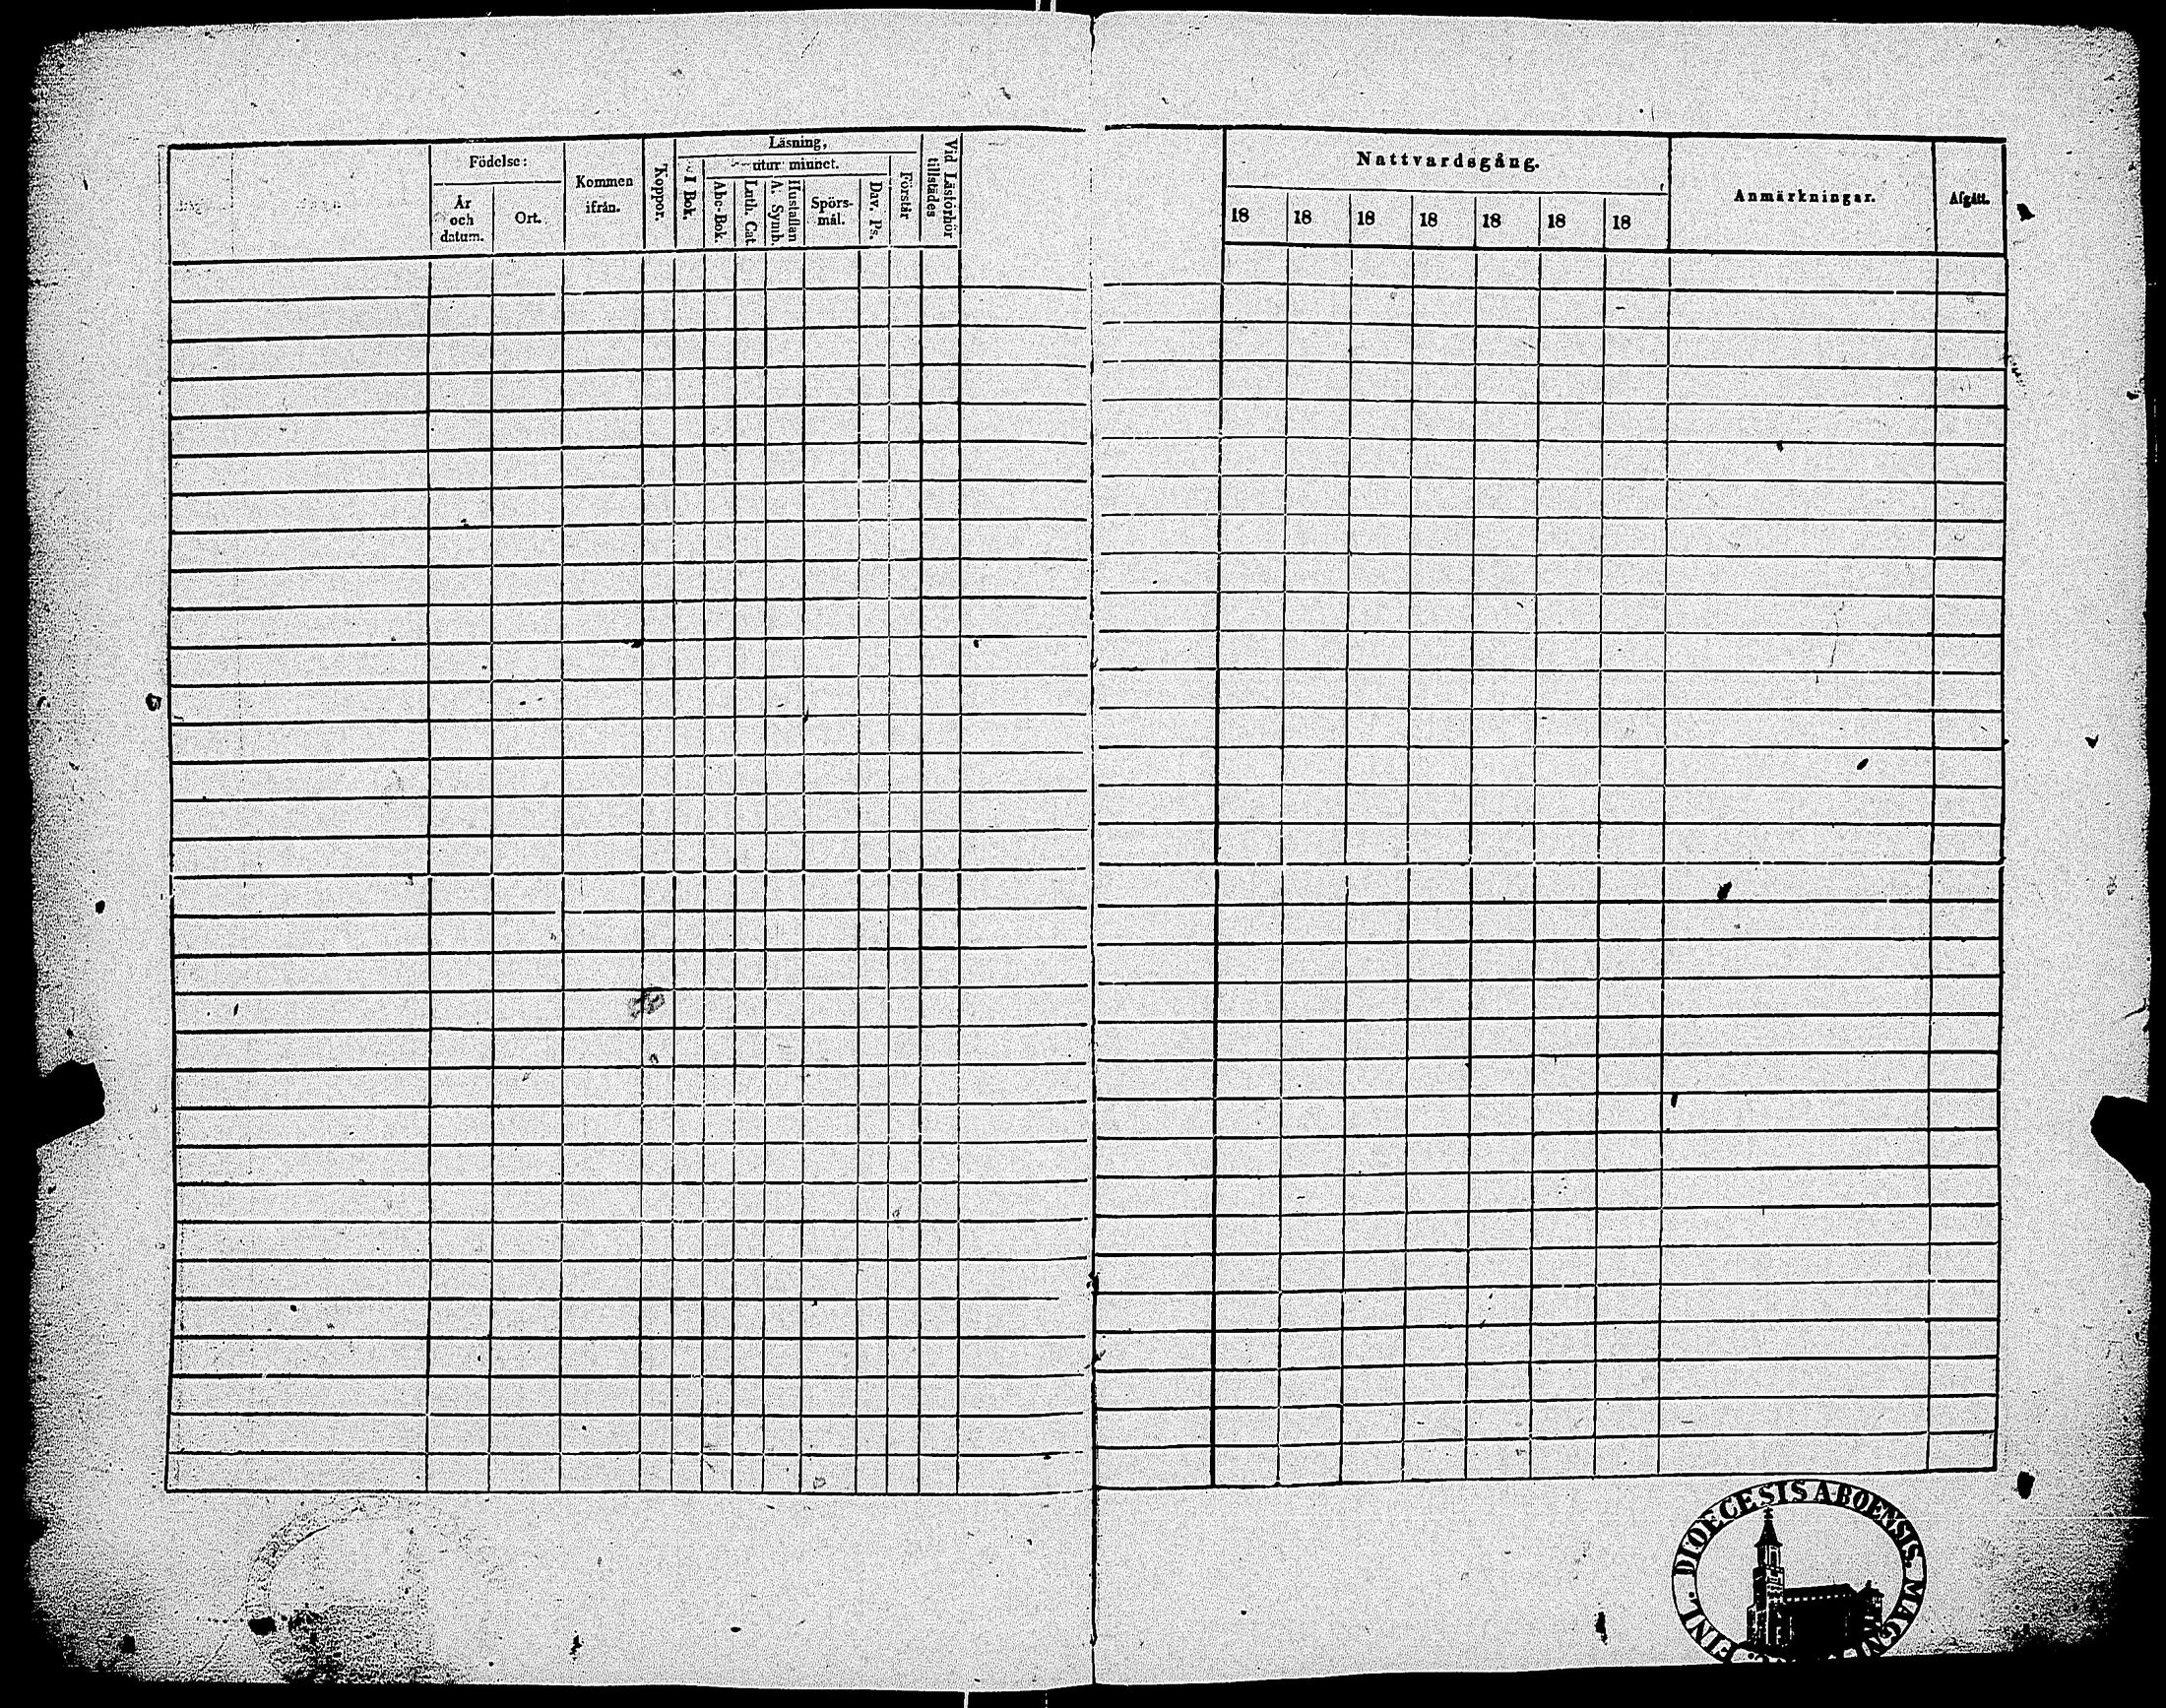 Födelse:
År och datum.
Ort.
Kommen ifrån.
Koppor.
Läsning,
I Bok.
utur minnet.
Abc-Bok.
Luth. Cat.
Hustaflan
A. Symb.
Spörs-
mål.
Dav. Ps.
Förstår
Vid Läsförhör
tillstädes
Nattvardsgång.
18 18 18 18 18 18 18
Anmärkningar.
Afgått.
FINL. DIOECESIS ABOENSIS. MAGN